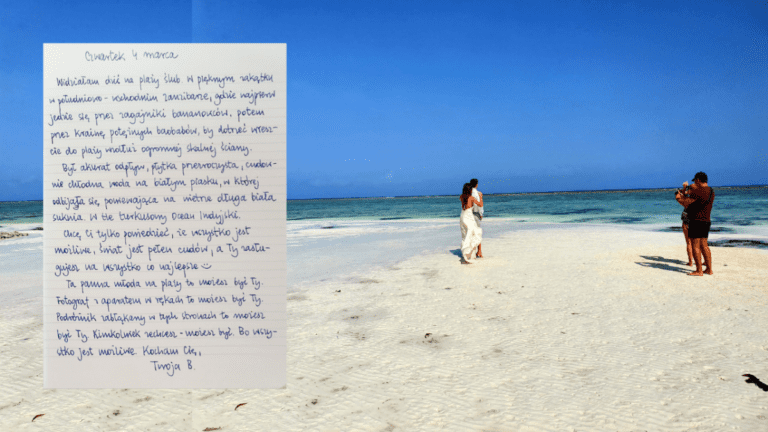 Czwartek 4 marca
Widziałam dziś na plaży ślub w pięknym zakątku
w południowo-wschodnim Zanzibarze, gdzie najpierw
jedzie się przez zagajniki bananowców, potem
przez krainę potężnych baobabów, by dotrzeć wresz-
cie do plaży wzdłuż ogromnej skalnej ściany.
Był akurat odpływ, płytka przezroczysta, cudow-
nie chłodna woda na białym piasku, w której
odbijała się powiewająca na wietrze długa biała
suknia. W tle turkusowy Ocean Indyjski.
Chcę Ci tylko powiedzieć, że wszystko jest
możliwe, świat jest pełen cudów, a Ty zasłu-
gujesz na wszystko co najlepsze
Ta panna młoda na plaży to możesz być Ty.
Fotograf z aparatem w rękach to możesz być Ty.
Podróżnik zabłąkany w tych stronach to możesz
być Ty. Kimkolwiek zechcesz - możesz być. Bo wszy-
stko jest możliwe. Kocham Cię,
Twoja B.